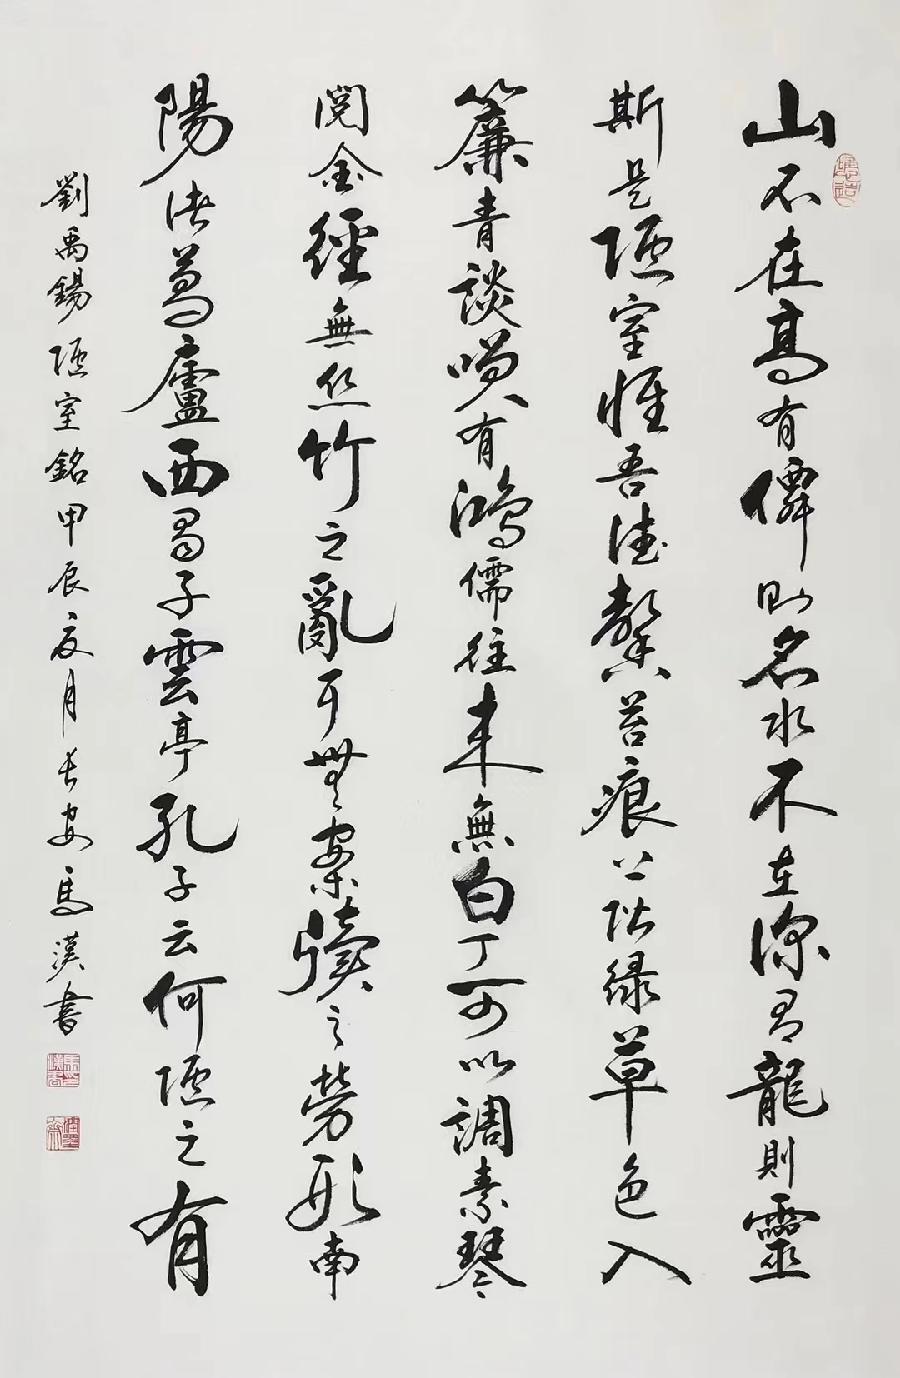 山不在高有僊則名水不在深有龍則靈
斯是陋室惟吾德馨苔痕上階緑草色入
簾青談笑有鴻儒往来無白丁可以調素琴
閲金經無丝竹之亂耳無案牘之勞形南
陽诸葛廬西蜀子雲亭孔子云何陋之有
劉禹錫陋室銘甲辰夏月长安馬漢書